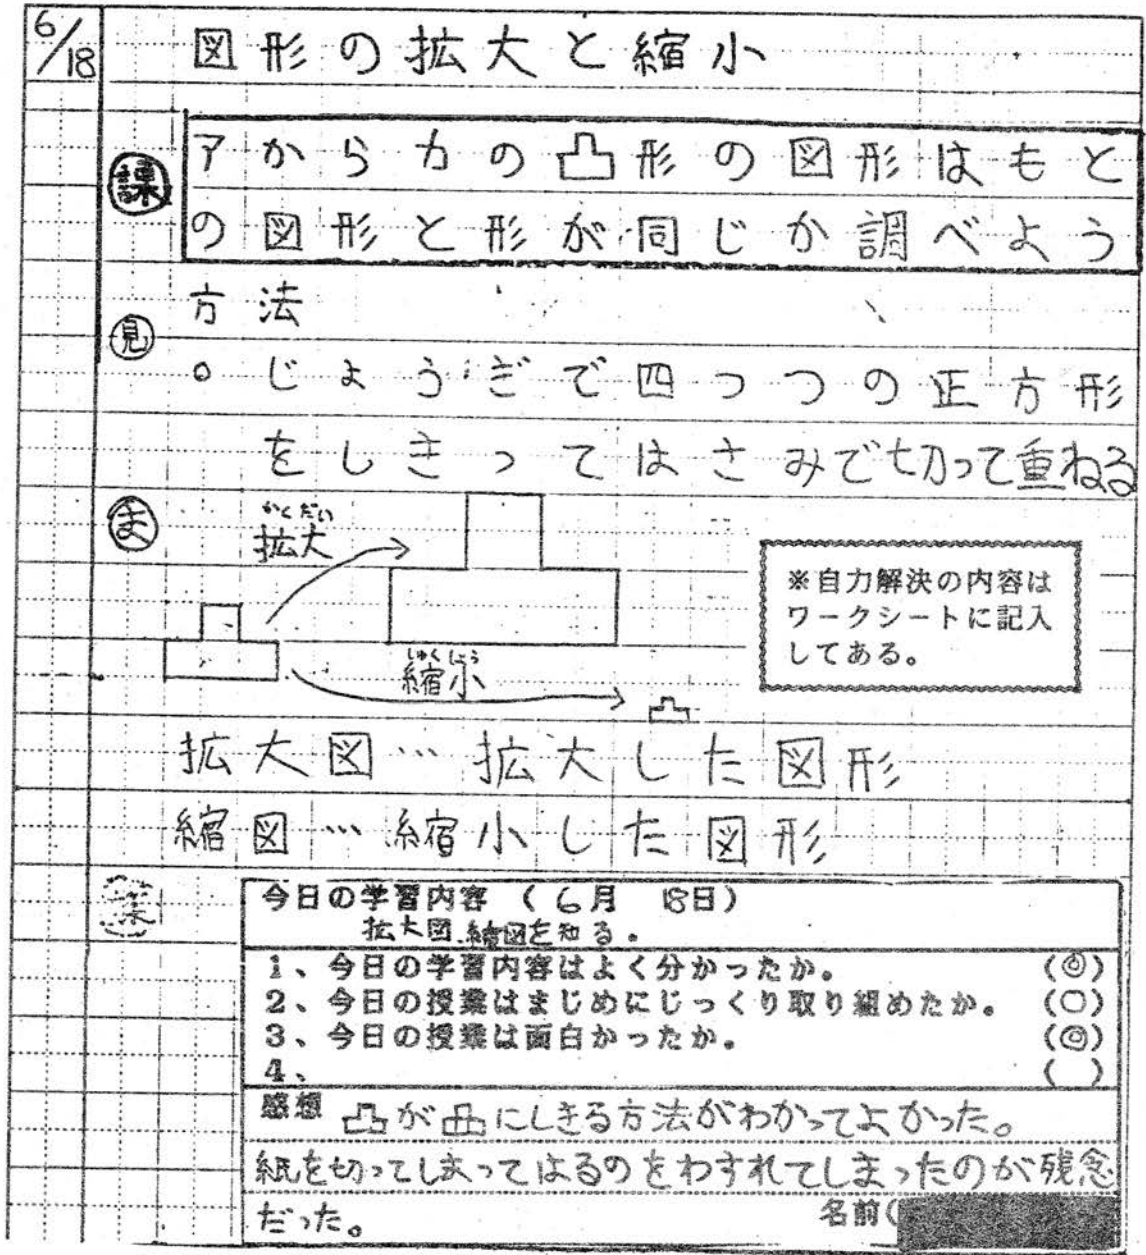 6/18 図形の拡大と縮小
課 アからカの凸形の図形はもと
の図形と形が同じか調べよう
方法
見
○じょうぎで四っつの正方形
をしきってはさみで切って重ねる
ま
かくだい
拡大
※自力解決の内容は
ワークシートに記入
してある。
しゅくしょう
縮小
拡大図…拡大した図形
縮図…縮小した図形
今日の学習内容 (6月 18日)
拡大図、縮図を知る。
1、今日の学習内容はよく分かったか。 (◎)
2、今日の授業はまじめにじっくり取り組めたか。 (○)
3、今日の授業は面白かったか。 (◎)
4、 ( )
感想 凸が凸にしきる方法がわかってよかった。
紙を切ってしまってはるのをわすれてしまったのが残念
だった。 名前(